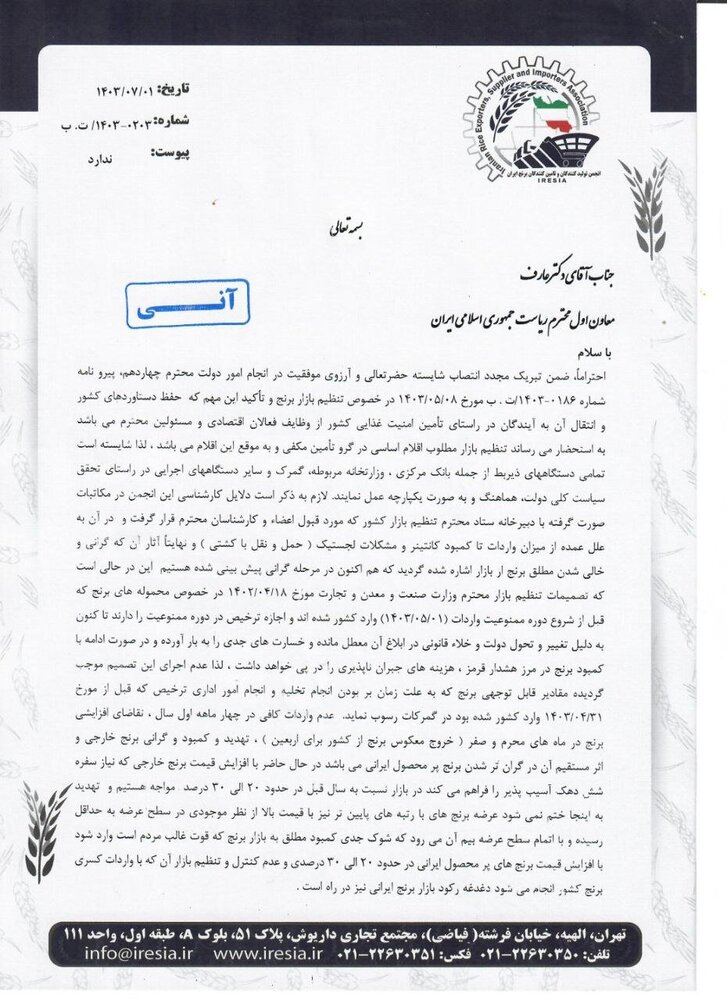 تاریخ: ۱۴۰۳/۰۷/۰۱
شماره: ۰۲۰۳-۱۴۰۳/ت. ب
پیوست: ندارد
Iranian Rice Exporters, Supplier and Importers Association
انجمن تولید کنندگان و تامین کنندگان برنج ایران
IRESIA
بسمه تعالی
جناب آقای دکتر عارف
آنـــی
معاون اول محترم ریاست جمهوری اسلامی ایران
با سلام
احتراماً، ضمن تبریک مجدد انتصاب شایسته حضرتعالی و آرزوی موفقیت در انجام امور دولت محترم چهاردهم، پیرو نامه
شماره ۰۱۸۶-۱۴۰۳/ت. ب مورخ ۱۴۰۳/۰۵/۰۸ در خصوص تنظیم بازار برنج و تأکید این مهم که حفظ دستاوردهای کشور
و انتقال آن به آیندگان در راستای تأمین امنیت غذایی کشور از وظایف فعالان اقتصادی و مسئولین محترم می باشد
به استحضار می رساند تنظیم بازار مطلوب اقلام اساسی در گرو تأمین مکفی و به موقع این اقلام می باشد ، لذا شایسته است
تمامی دستگاههای ذیربط از جمله بانک مرکزی ، وزارتخانه مربوطه، گمرک و سایر دستگاههای اجرایی در راستای تحقق
سیاست کلی دولت، هماهنگ و به صورت یکپارچه عمل نمایند. لازم به ذکر است دلایل کارشناسی این انجمن در مکاتبات
صورت گرفته با دبیرخانه ستاد محترم تنظیم بازار کشور که مورد قبول اعضاء و کارشناسان محترم قرار گرفت و در آن به
علل عمده از میزان واردات تا کمبود کانتینر و مشکلات لجستیک ( حمل و نقل با کشتی ) و نهایتاً آثار آن که گرانی و
خالی شدن مطلق برنج از بازار اشاره شده گردید که هم اکنون در مرحله گرانی پیش بینی شده هستیم این در حالی است
که تصمیمات تنظیم بازار محترم وزارت صنعت و معدن و تجارت مورخ ۱۴۰۲/۰۴/۱۸ در خصوص محموله های برنج که
قبل از شروع دوره ممنوعیت واردات (۱۴۰۳/۰۵/۰۱) وارد کشور شده اند و اجازه ترخیص در دوره ممنوعیت را دارند تا کنون
به دلیل تغییر و تحول دولت و خلاء قانونی در ابلاغ آن معطل مانده و خسارت های جدی را به بار آورده و در صورت ادامه با
کمبود برنج در مرز هشدار قرمز ، هزینه های جبران ناپذیری را در پی خواهد داشت ، لذا عدم اجرای این تصمیم موجب
گردیده مقادیر قابل توجهی برنج که به علت زمان بر بودن انجام تخلیه و انجام امور اداری ترخیص که قبل از مورخ
۱۴۰۳/۰۴/۳۱ وارد کشور شده بود در گمرکات رسوب نماید. عدم واردات کافی در چهار ماهه اول سال ، تقاضای افزایشی
برنج در ماه های محرم و صفر ( خروج معکوس برنج از کشور برای اربعین ) ، تهدید و کمبود و گرانی برنج خارجی و
اثر مستقیم آن در گران تر شدن برنج پر محصول ایرانی می باشد در حال حاضر با افزایش قیمت برنج خارجی که نیاز سفره
شش دهک آسیب پذیر را فراهم می کند در بازار نسبت به سال قبل در حدود ۲۰ الی ۳۰ درصد مواجه هستیم و تهدید
به اینجا ختم نمی شود عرضه برنج های با رتبه های پایین تر نیز با قیمت بالا از نظر موجودی در سطح عرضه به حداقل
رسیده و با اتمام سطح عرضه بیم آن می رود که شوک جدی کمبود مطلق به بازار برنج که قوت غالب مردم است وارد شود
با افزایش قیمت برنج های پر محصول ایرانی در حدود ۲۰ الی ۳۰ درصدی و عدم کنترل و تنظیم بازار آن که با واردات کسری
برنج کشور انجام می شود دغدغه رکود بازار برنج ایرانی نیز در راه است .
تهران، الهیه، خیابان فرشته( فیاضی)، مجتمع تجاری داریوش، پلاک ۵۱، بلوک A، طبقه اول، واحد ۱۱۱
تلفن: ۲۲۶۳۰۳۵۰-۰۲۱ فکس: ۲۲۶۳۰۳۵۱-۰۲۱ www.iresia.ir info@iresia.ir